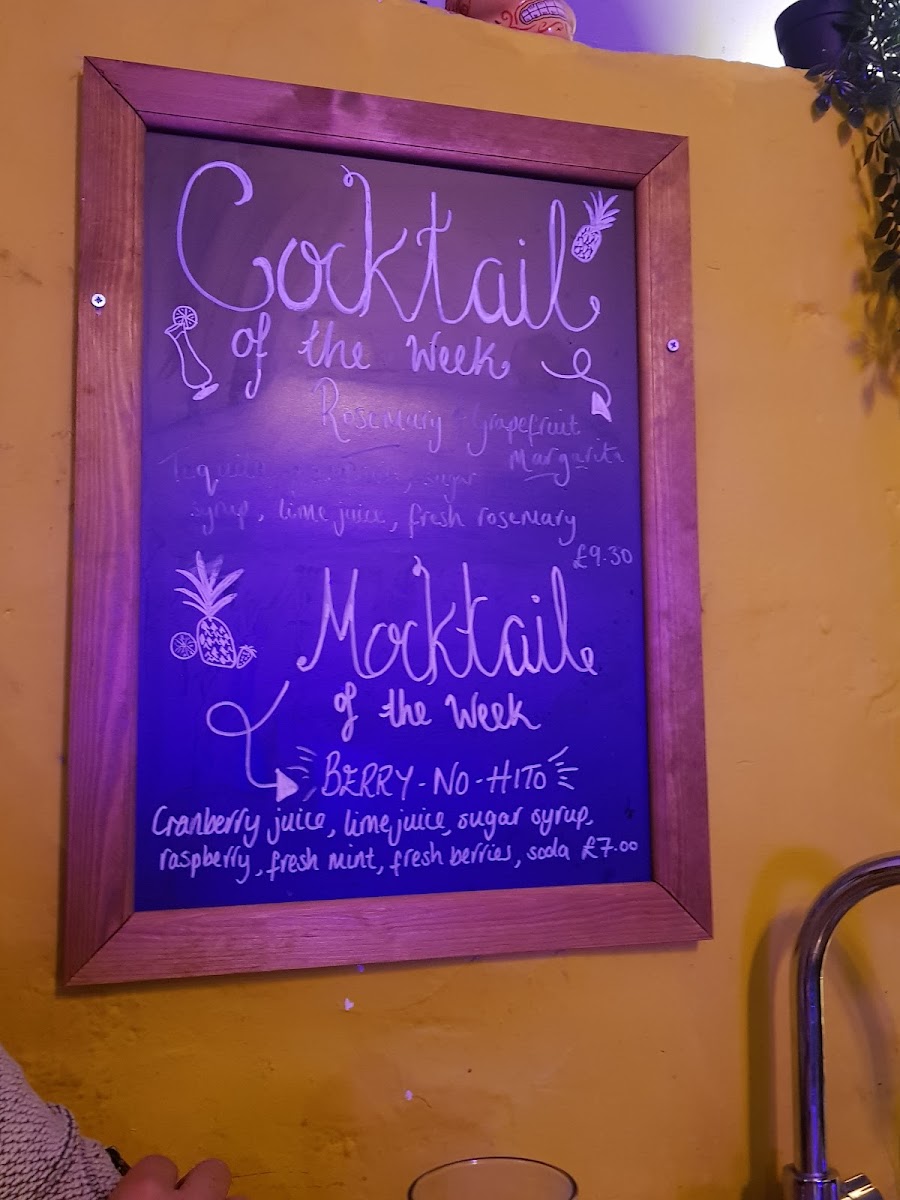 Cocktail
of the Week
Rosemary + Grapefruit
Margarita
Tequila, sugar
syrup, lime juice, fresh rosemary
£9.30
Mocktail
of the Week
BERRY-NO-HITO
Cranberry juice, lime juice, sugar syrup,
raspberry, fresh mint, fresh berries, soda £7.00